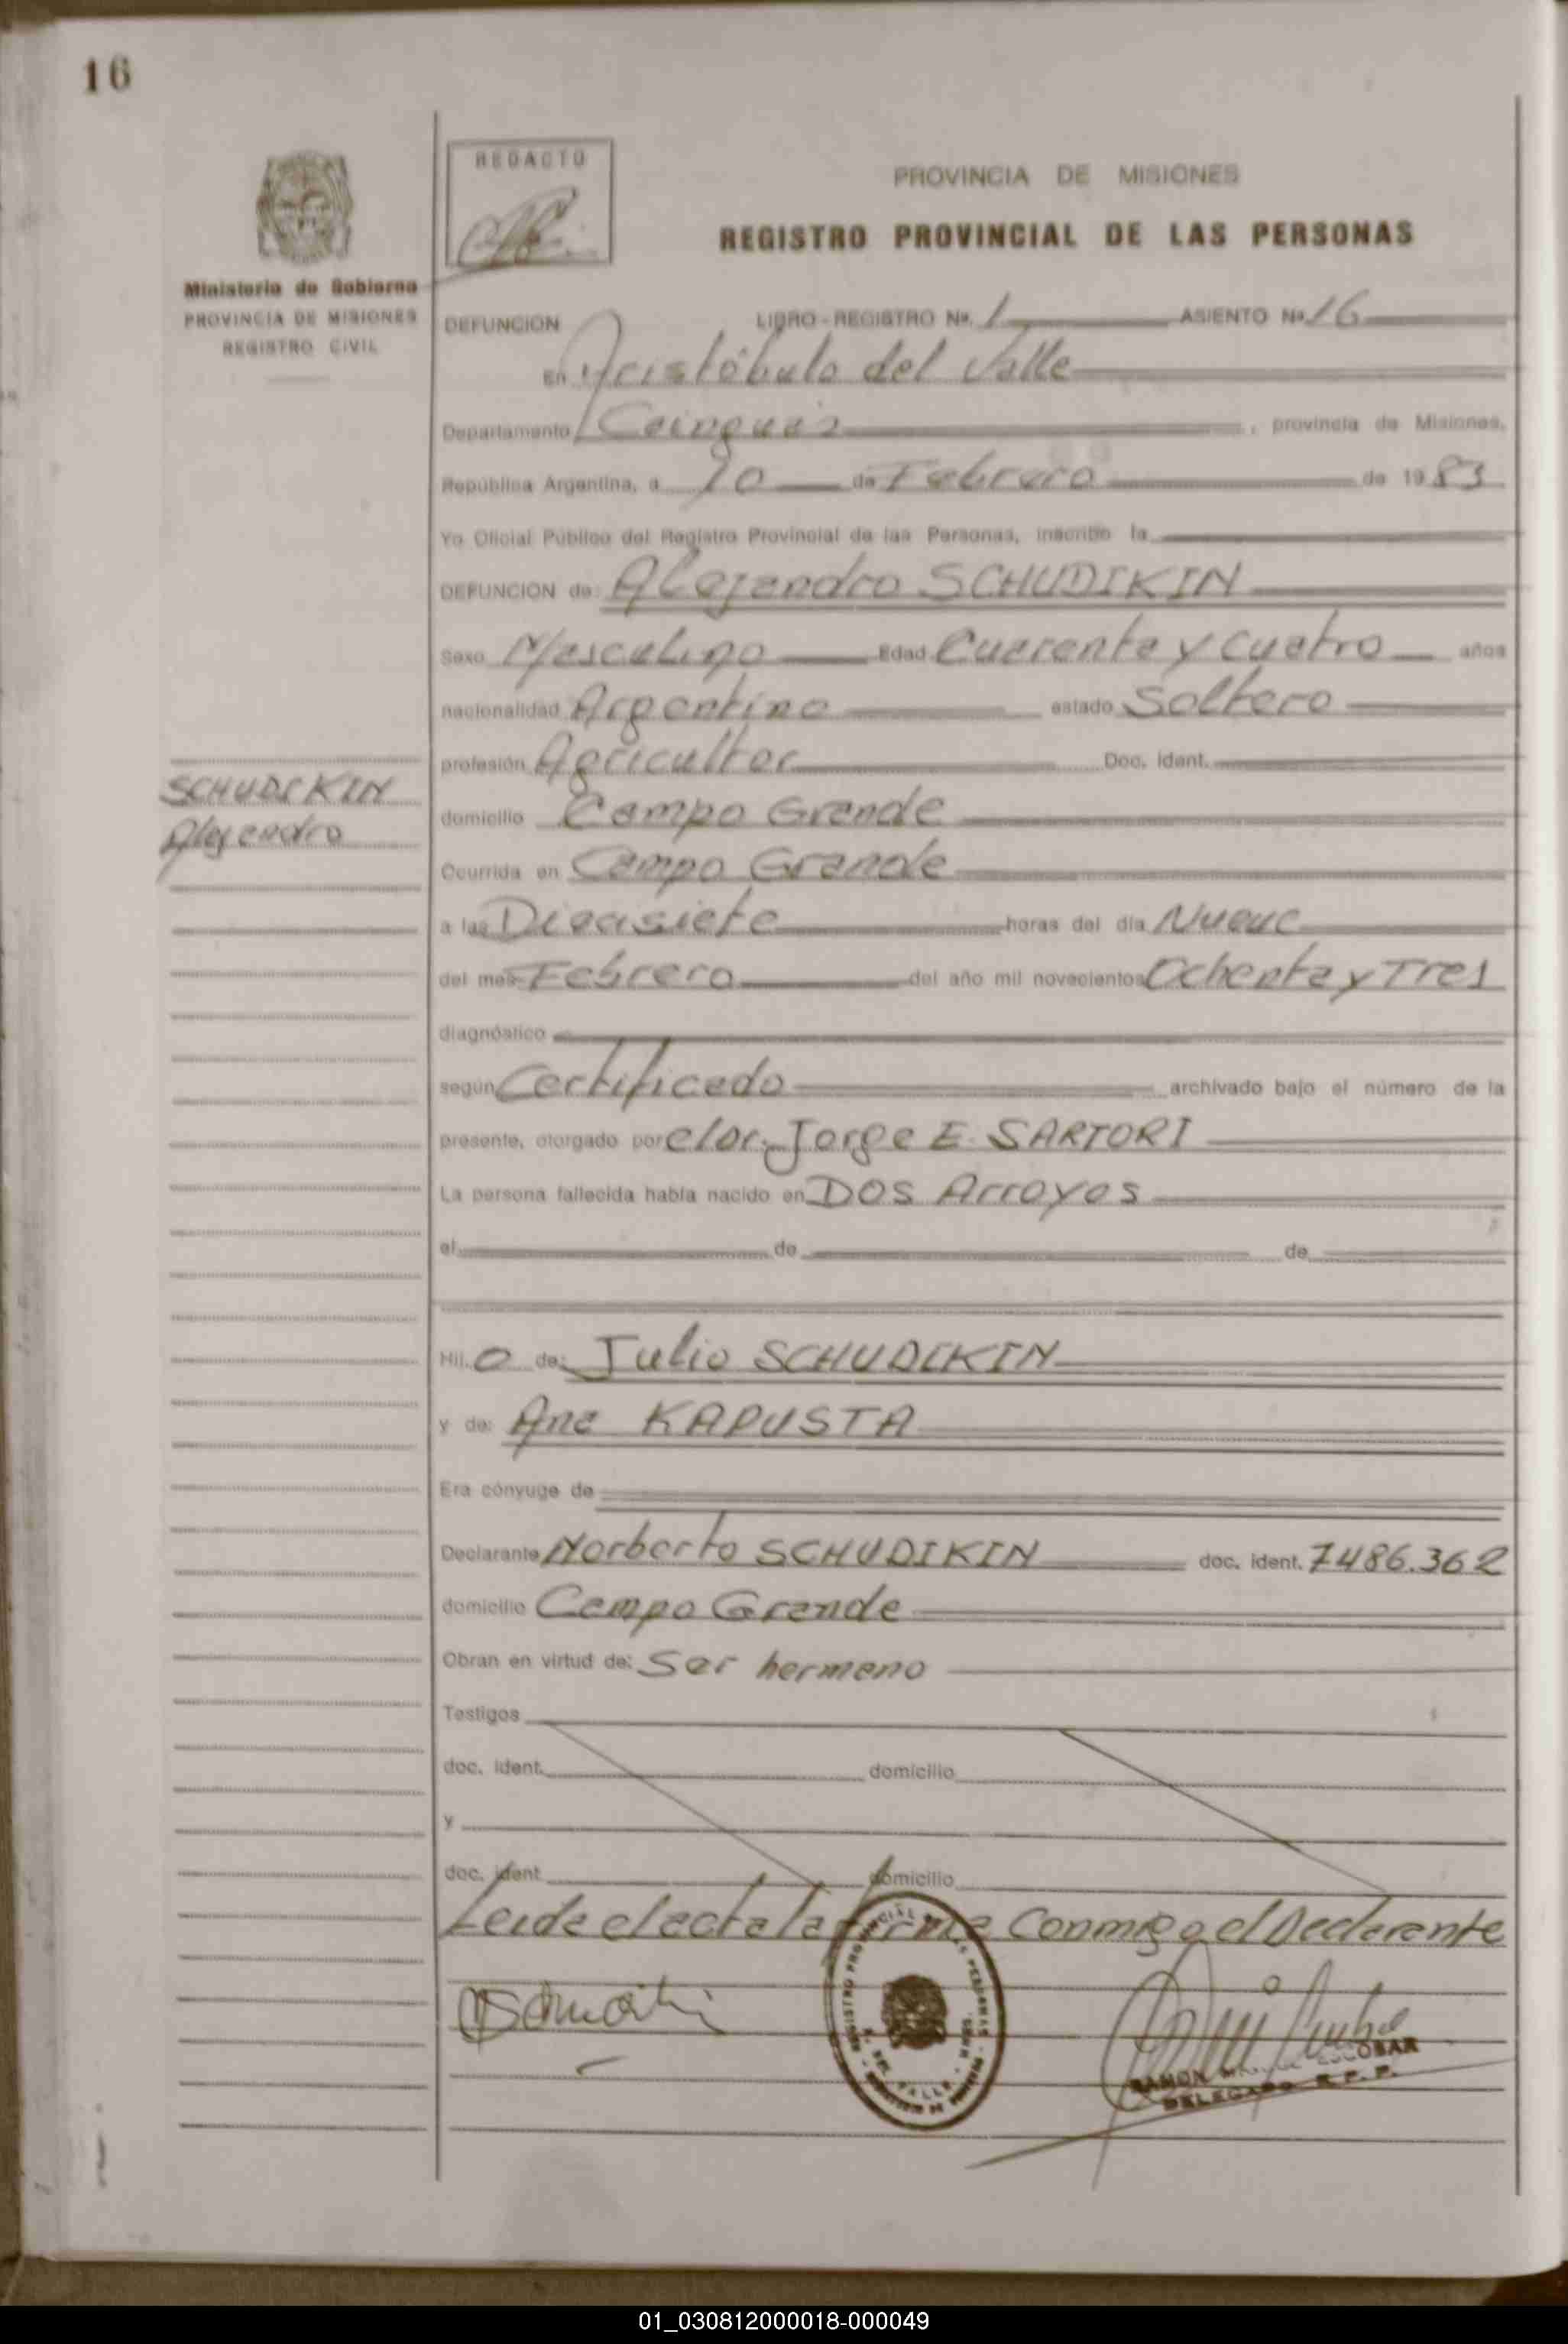 16
REDACTO
PROVINCIA DE MISIONES
REGISTRO PROVINCIAL DE LAS PERSONAS
Ministerio de Gobierno
PROVINCIA DE MISIONES
REGISTRO CIVIL
DEFUNCION LIBRO - REGISTRO Nº. 1 ASIENTO Nº 16
En Aristóbulo del Valle
Departamento Cainguás, provincia de Misiones,
República Argentina, a 10 de Febrero de 1983
Yo Oficial Público del Registro Provincial de las Personas, inscribo la
DEFUNCION de: Alejandro SCHUDIKIN
Sexo Masculino Edad Cuarenta y Cuatro años
nacionalidad Argentino estado Soltero
profesión Agricultor Doc. ident.
SCHUDIKIN
Alejandro
domicilio Campo Grande
Ocurrida en Campo Grande
a las Diecisiete horas del día Nueve
del mes Febrero del año mil novecientos Ochenta y Tres
diagnóstico
según Certificado archivado bajo el número de la
presente, otorgado por el Dr. Jorge E. SARTORI
La persona fallecida había nacido en DOS Arroyos
el de de
Hij o de: Julio SCHUDIKIN
y de: Ana KAPUSTA
Era cónyuge de
Declarante Norberto SCHUDIKIN doc. ident. 7486.362
domicilio Campo Grande
Obran en virtud de: Ser hermano
Testigos
doc. ident. domicilio
y
doc. ident. domicilio
Leida el acta la firma Conmigo el Declarante
REGISTRO PROVINCIAL DE LAS PERSONAS
A. DEL VALLE - MNES.
RAMON ESCOBAR
DELEGADO R. P. P.
01_030812000018-000049